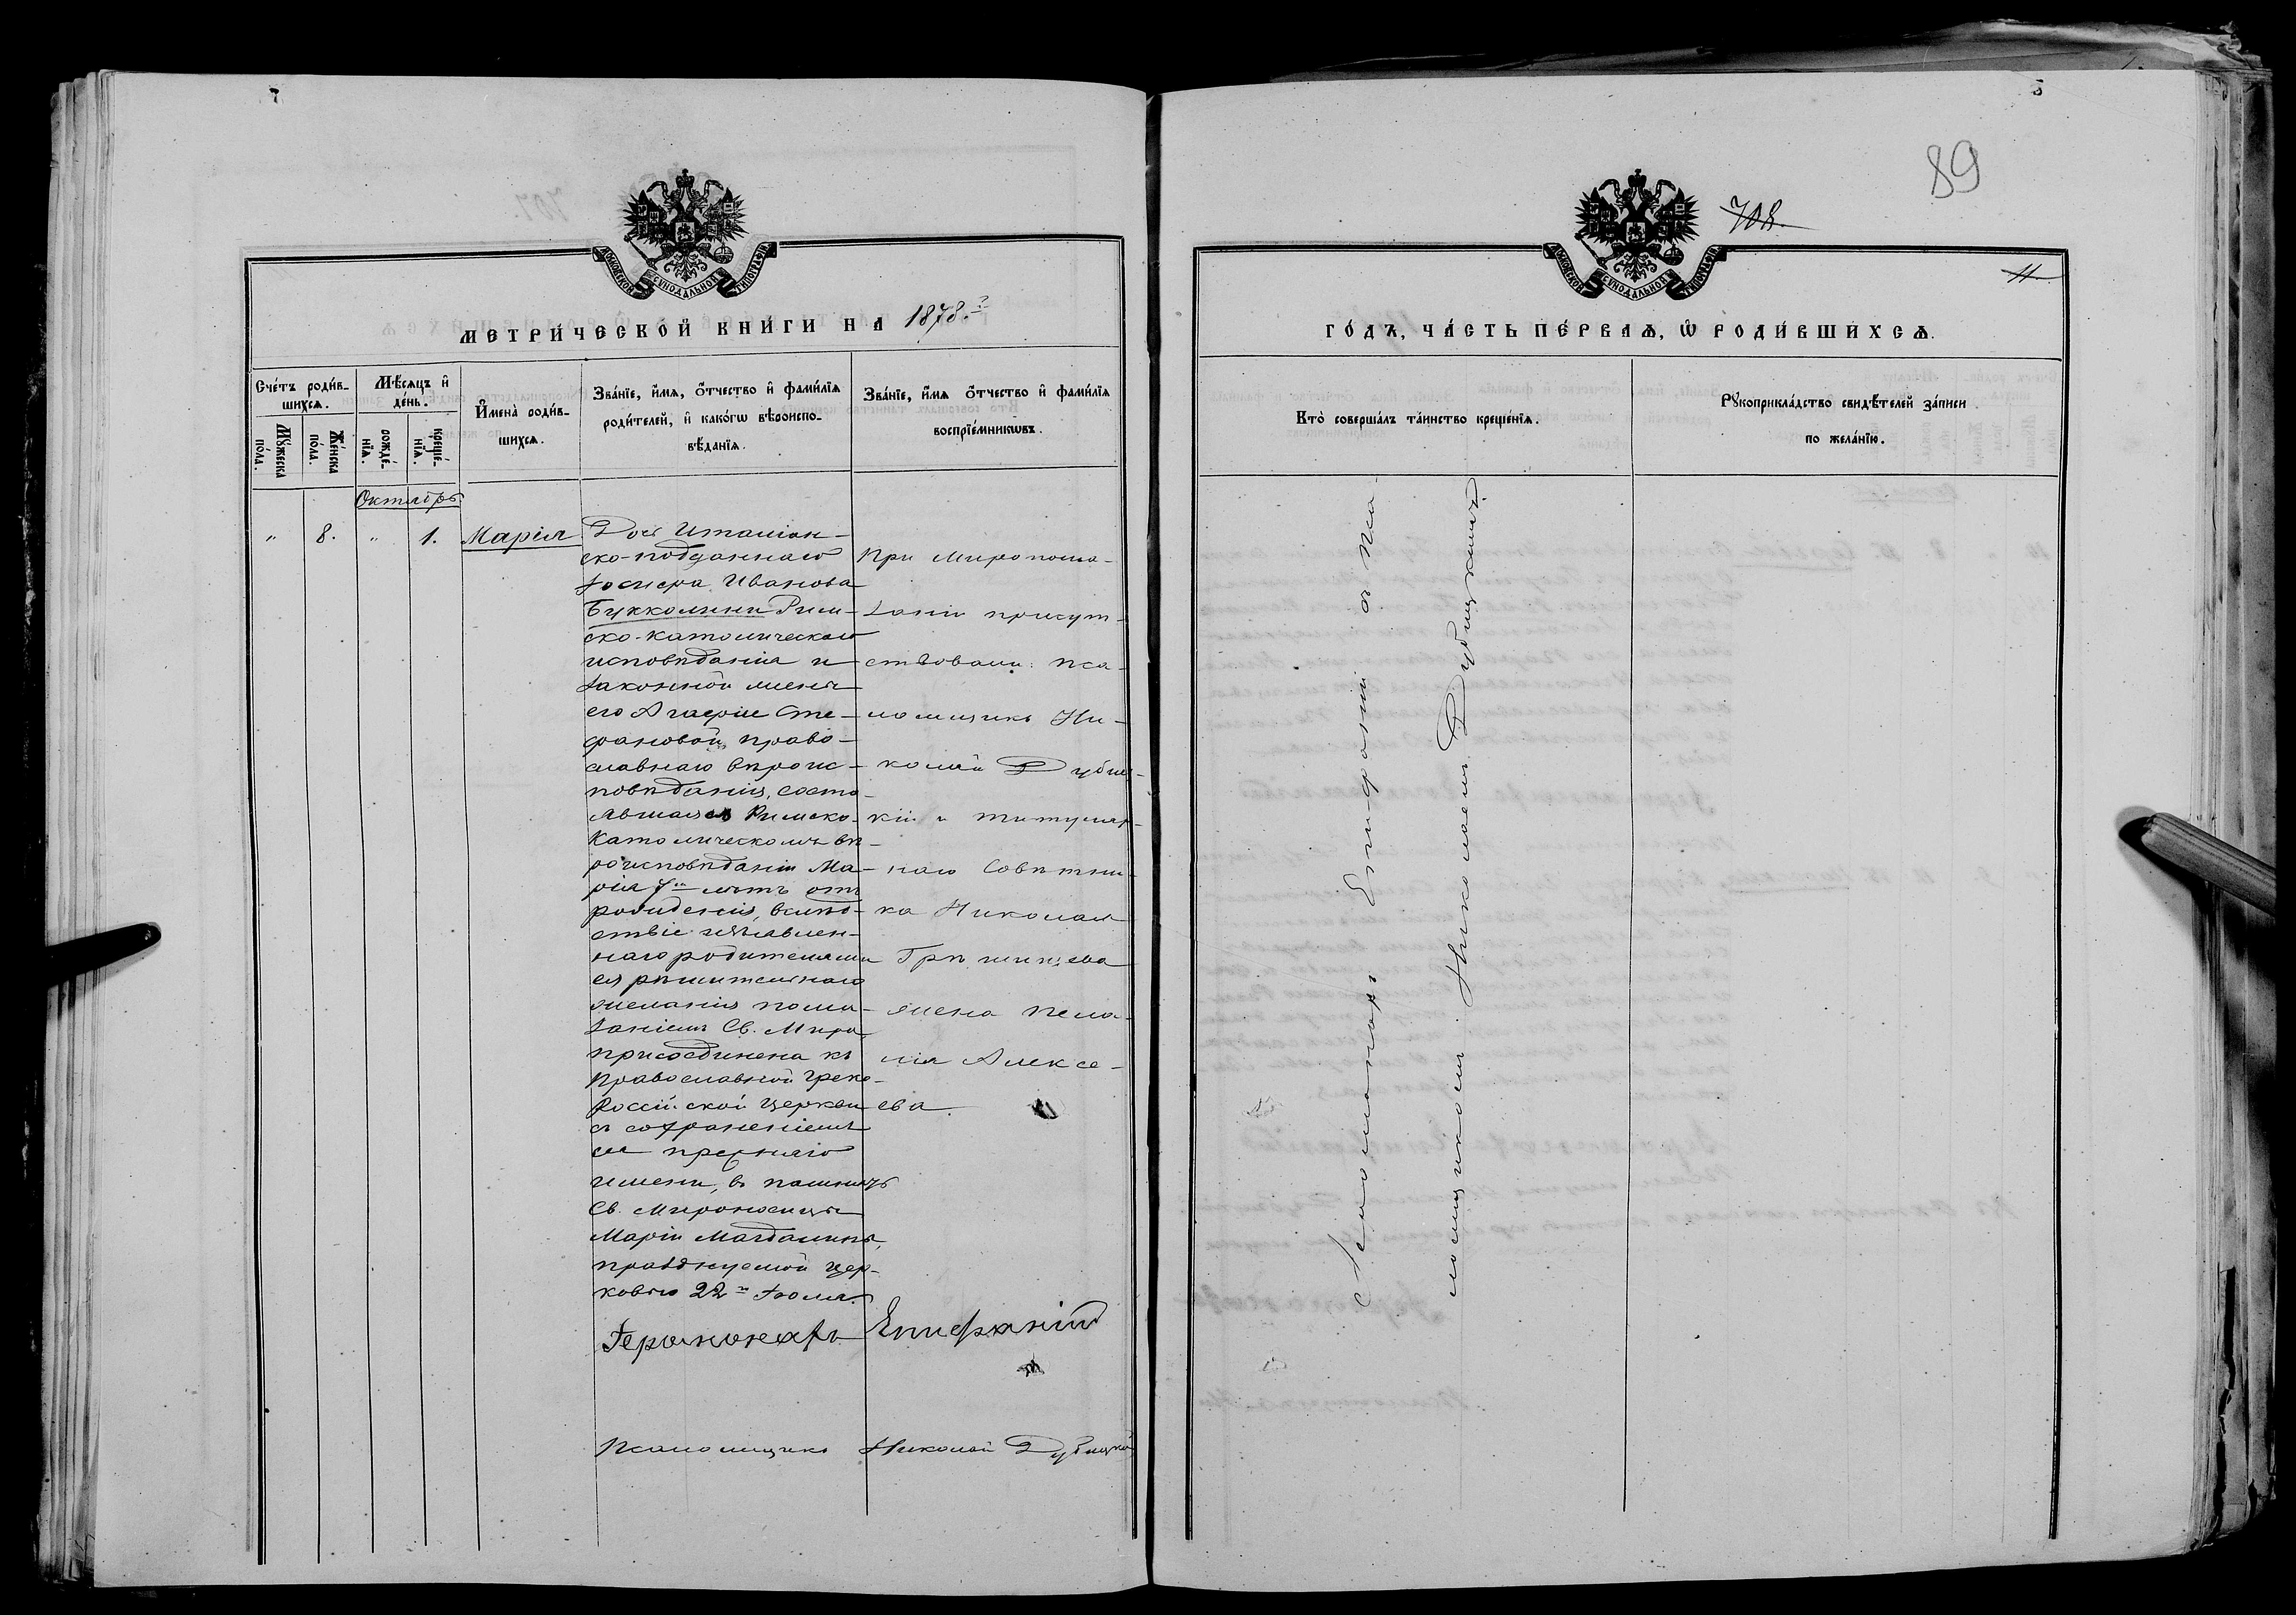 89
708.
11
МОСКОВСКОЙ СѴНОДАЛЬНОЙ ТИПОГРАФІИ
МЕТРИ́ЧЕСКОЙ КНИ́ГИ НА 1878.й
Сче́тъ роди́в-
шихсѧ.
Мꙋ́жеска
по́ла.
Же́нска
по́ла.
Мѣ́сѧцъ и҆
де́нь.
рожде́-
нїѧ.
креще́-
нїѧ.
И҆мена̀ роди́в-
шихсѧ.
Зва́нїе, и҆́мѧ, ѻ҆́тчество и҆ фами́лїѧ
роди́телей, и҆ како́гѡ вѣроиспо-
вѣ́данїѧ.
Зва́нїе, и҆́мѧ ѻ҆́тчество и҆ фами́лїѧ
воспрїе́мникѡвъ.
Октябрь
„ 8. „ 1. Марія
Дочь Италіан-
ско-подданнаго
Іосифа Иванова
Букколини Рим-
ско-католическаго
исповѣданія и
законной жены
его Агафіи Сте-
фановой, право-
славнаго вѣроис-
повѣданія, состо-
явшая въ Римско-
Католическомъ вѣ-
роисповѣданіи Ма-
рія 7ми лѣтъ отъ
рожденія, вслѣд-
ствіе изъявлен-
наго родителями
ея рѣшительнаго
желанія пома-
заніемъ Св. Мира
присоединена къ
Православной Греко-
Россійской Церкви
съ сохраненіемъ
ея прежняго
имени, въ память
Св. Мироносицы
Маріи Магдалины,
празднуемой Цер-
ковью 22го Іюля.
При Миропома-
заніи присут-
ствовали: пса-
ломщикъ Ни-
колай Дубиц-
кій и титуляр-
наго Совѣтни-
ка Николая
жена Пела-
гія Алексе-
ева.
Іеромонахъ Епифаній
Псаломщикъ Николай Дубицкій
МОСКОВСКОЙ СѴНОДАЛЬНОЙ ТИПОГРАФІИ
ГО́ДЪ, ЧА́СТЬ ПЕ́РВАѦ, Ѡ҆ РОДИ́ВШИХСѦ.
Кто̀ соверша́лъ та́инство креще́нїѧ.
Рꙋкоприкла́дство свидѣ́телей за́писи
по жела́нїю.
Іеромонахъ Епифаній съ Пса-
ломщикомъ Николаемъ Дубицкимъ.